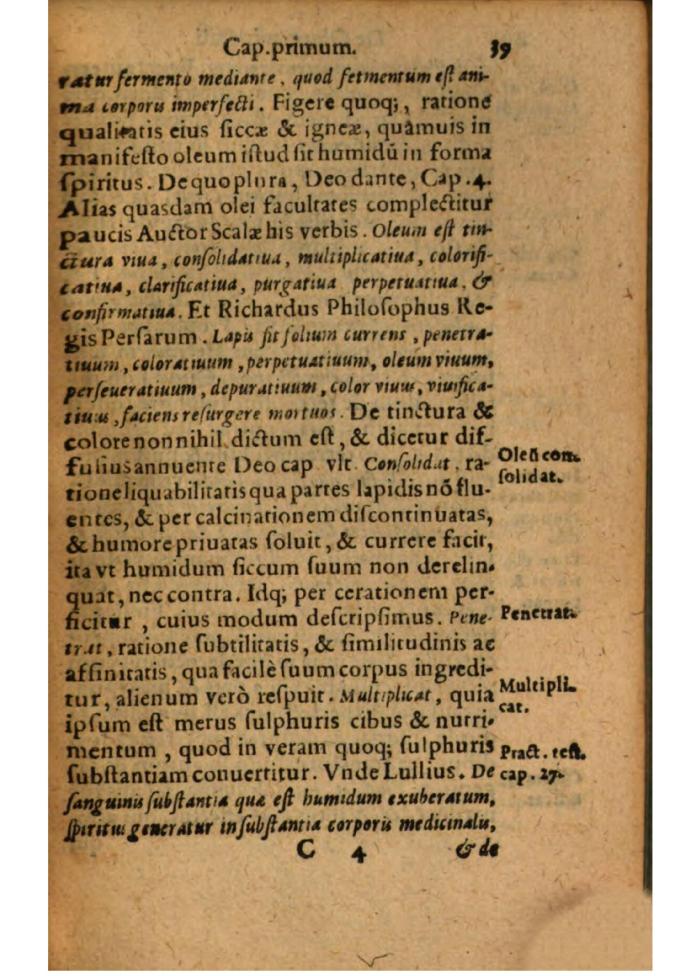 Cap.primum. 39
ratur fermento mediante, quod fetmentum est ani-
ma corporis imperfecti. Figere quoq;, ratione
qualitatis eius siccæ & igneæ, quàmuis in
manifesto oleum istud sit humidū in forma
spiritus. De quo plura, Deo dante, Cap.4.
Alias quasdam olei facultates complectitur
paucis Auctor Scalæ his verbis. Oleum est tin-
ctura viua, consolidatiua, multiplicatiua, colorifi-
catiua, clarificatiua, purgatiua perpetuatiua, &
confirmatiua. Et Richardus Philosophus Re-
gis Persarum. Lapis fit folium currens, penetra-
tiuum, coloratiuum, perpetuatiuum, oleum viuum,
perseueratiuum, depuratiuum, color viuus, viuifica-
tiuus, faciens resurgere mortuos. De tinctura &
colore nonnihil dictum est, & dicetur dif-
fusius annuente Deo cap vlt. Consolidat, ra-
Oleū con-
solidat.
tione liquabilitatis qua partes lapidis nō flu-
entes, & per calcinationem discontinuatas,
& humore priuatas soluit, & currere facit,
ita vt humidum siccum suum non derelin-
quat, nec contra. Idq; per cerationem per-
ficitur, cuius modum descripsimus. Pene-
Penetrat.
trat, ratione subtilitatis, & similitudinis ac
affinitatis, qua facilè suum corpus ingredi-
tur, alienum verò respuit. Multiplicat, quia
Multipli-
cat.
ipsum est merus sulphuris cibus & nutri-
mentum, quod in veram quoq; sulphuris
substantiam conuertitur. Vnde Lullius. De
Pract. test.
cap. 27.
sanguinis substantia quæ est humidum exuberatum,
spiritus generatur in substantia corporis medicinalis,
C 4 & de